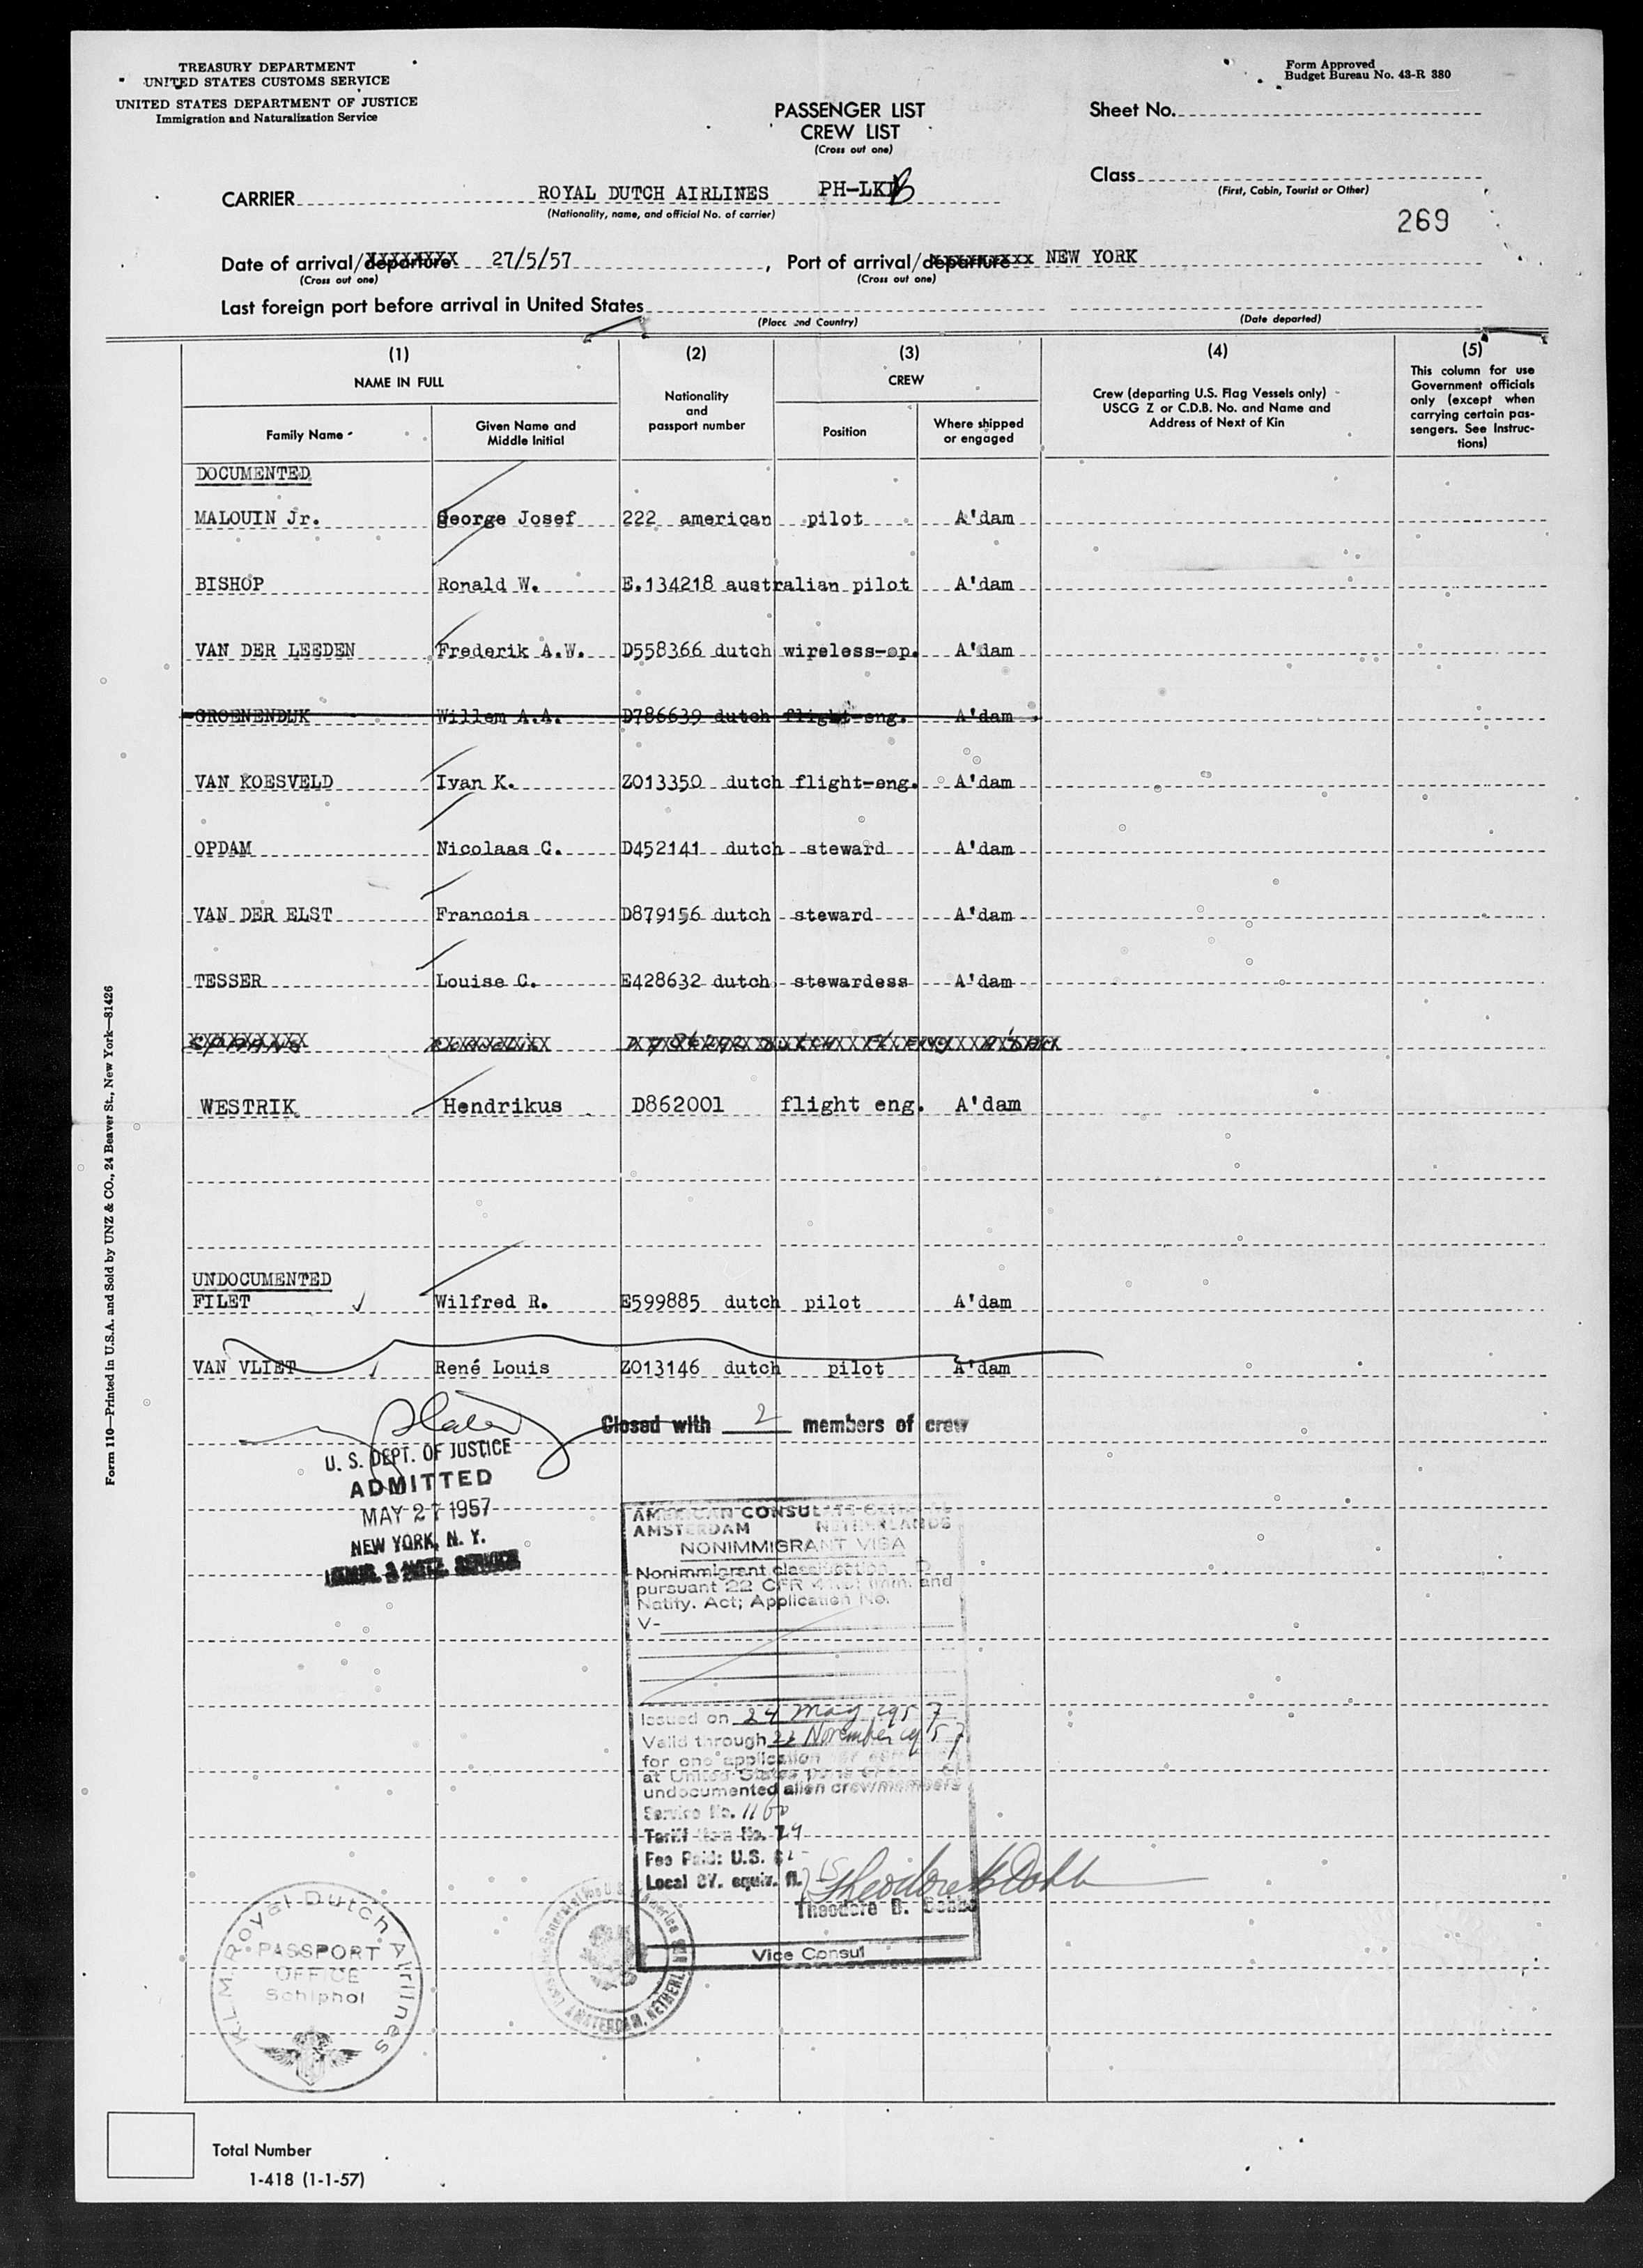 TREASURY DEPARTMENT
UNITED STATES CUSTOMS SERVICE
UNITED STATES DEPARTMENT OF JUSTICE
Immigration and Naturalization Service
Form Approved
Budget Bureau No. 43-R 380
PASSENGER LIST
CREW LIST
(Cross out one)
Sheet No.
Class
(First, Cabin, Tourist or Other)
CARRIER ROYAL DUTCH AIRLINES PH-LKB
(Nationality, name, and official No. of carrier)
269
Date of arrival/departure 27/5/57, Port of arrival/departure NEW YORK
(Cross out one) (Cross out one)
Last foreign port before arrival in United States
(Place and Country) (Date departed)
(1) (2) (3) (4) (5)
NAME IN FULL
Family Name
Given Name and Middle Initial
Nationality and passport number
CREW
Position
Where shipped or engaged
Crew (departing U.S. Flag Vessels only) USCG Z or C.D.B. No. and Name and Address of Next of Kin
This column for use Government officials only (except when carrying certain passengers. See Instructions)
DOCUMENTED
MALOUIN Jr. George Josef 222 american pilot A'dam
BISHOP Ronald W. E.134218 australian pilot A'dam
VAN DER LEEDEN Frederik A.W. D558366 dutch wireless-op. A'dam
GROENENDIJK Willem A.A. D786639 dutch flight-eng. A'dam
VAN KOESVELD Ivan K. Z013350 dutch flight-eng. A'dam
OPDAM Nicolaas C. D452141 dutch steward A'dam
VAN DER ELST Francois D879156 dutch steward A'dam
TESSER Louise C. E428632 dutch stewardess A'dam
WESTRIK Hendrikus D862001 flight eng. A'dam
UNDOCUMENTED
FILET Wilfred R. E599885 dutch pilot A'dam
VAN VLIET René Louis Z013146 dutch pilot A'dam
Closed with 2 members of crew
U. S. DEPT. OF JUSTICE
ADMITTED
MAY 27 1957
NEW YORK, N. Y.
IMMIG. & NATZ. SERVICE
AMERICAN CONSULATE GENERAL
AMSTERDAM NETHERLANDS
NONIMMIGRANT VISA
Nonimmigrant classification D
pursuant 22 CFR Imm. and
Natlty. Act; Application No.
V-
Issued on 24 May 1957
Valid through 23 November 1957
for one application
at United States
undocumented alien crewmembers
Service No. 1160
Tariff Item No. 24
Fee Paid: U.S. $2-
Local CY. equiv. fl.
Theodore B. Dobbs
Vice Consul
K.L.M. Royal Dutch Airlines
PASSPORT
OFFICE
Schiphol
AMSTERDAM, NETHERLANDS
Form 110—Printed in U.S.A. and Sold by UNZ & CO., 24 Beaver St., New York—81426
Total Number
1-418 (1-1-57)